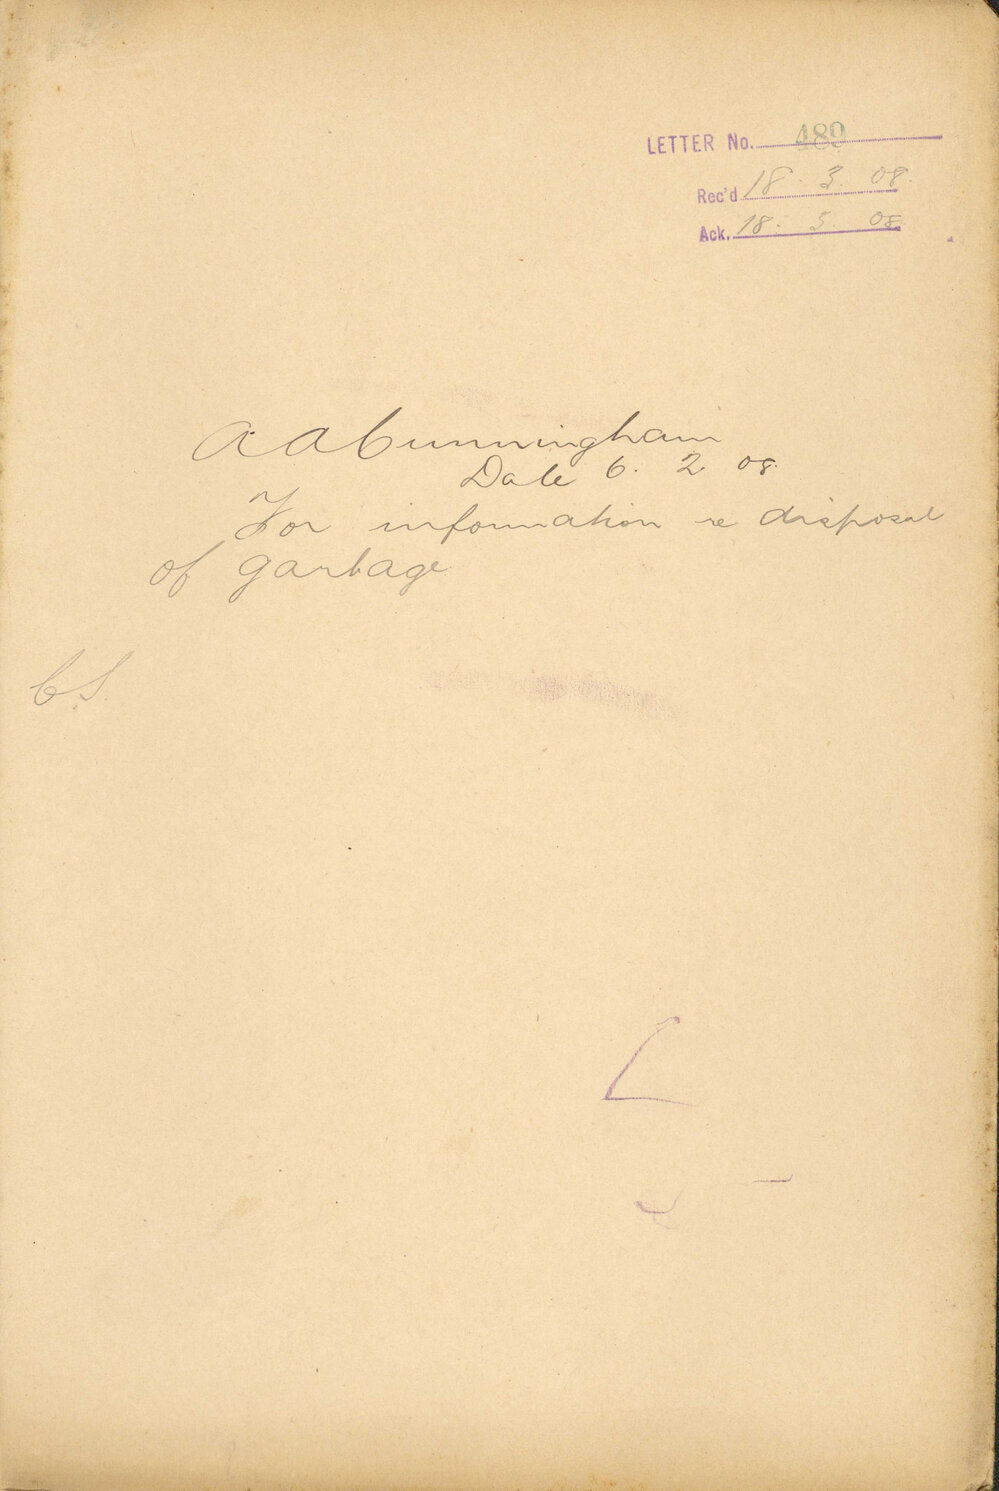 LETTER No. 489
Rec'd 18. 3. 08.
Ack. 18. 3 08
A. A Cunningham
Date 6. 2 08.
For information re disposal
of garbage
C.S.